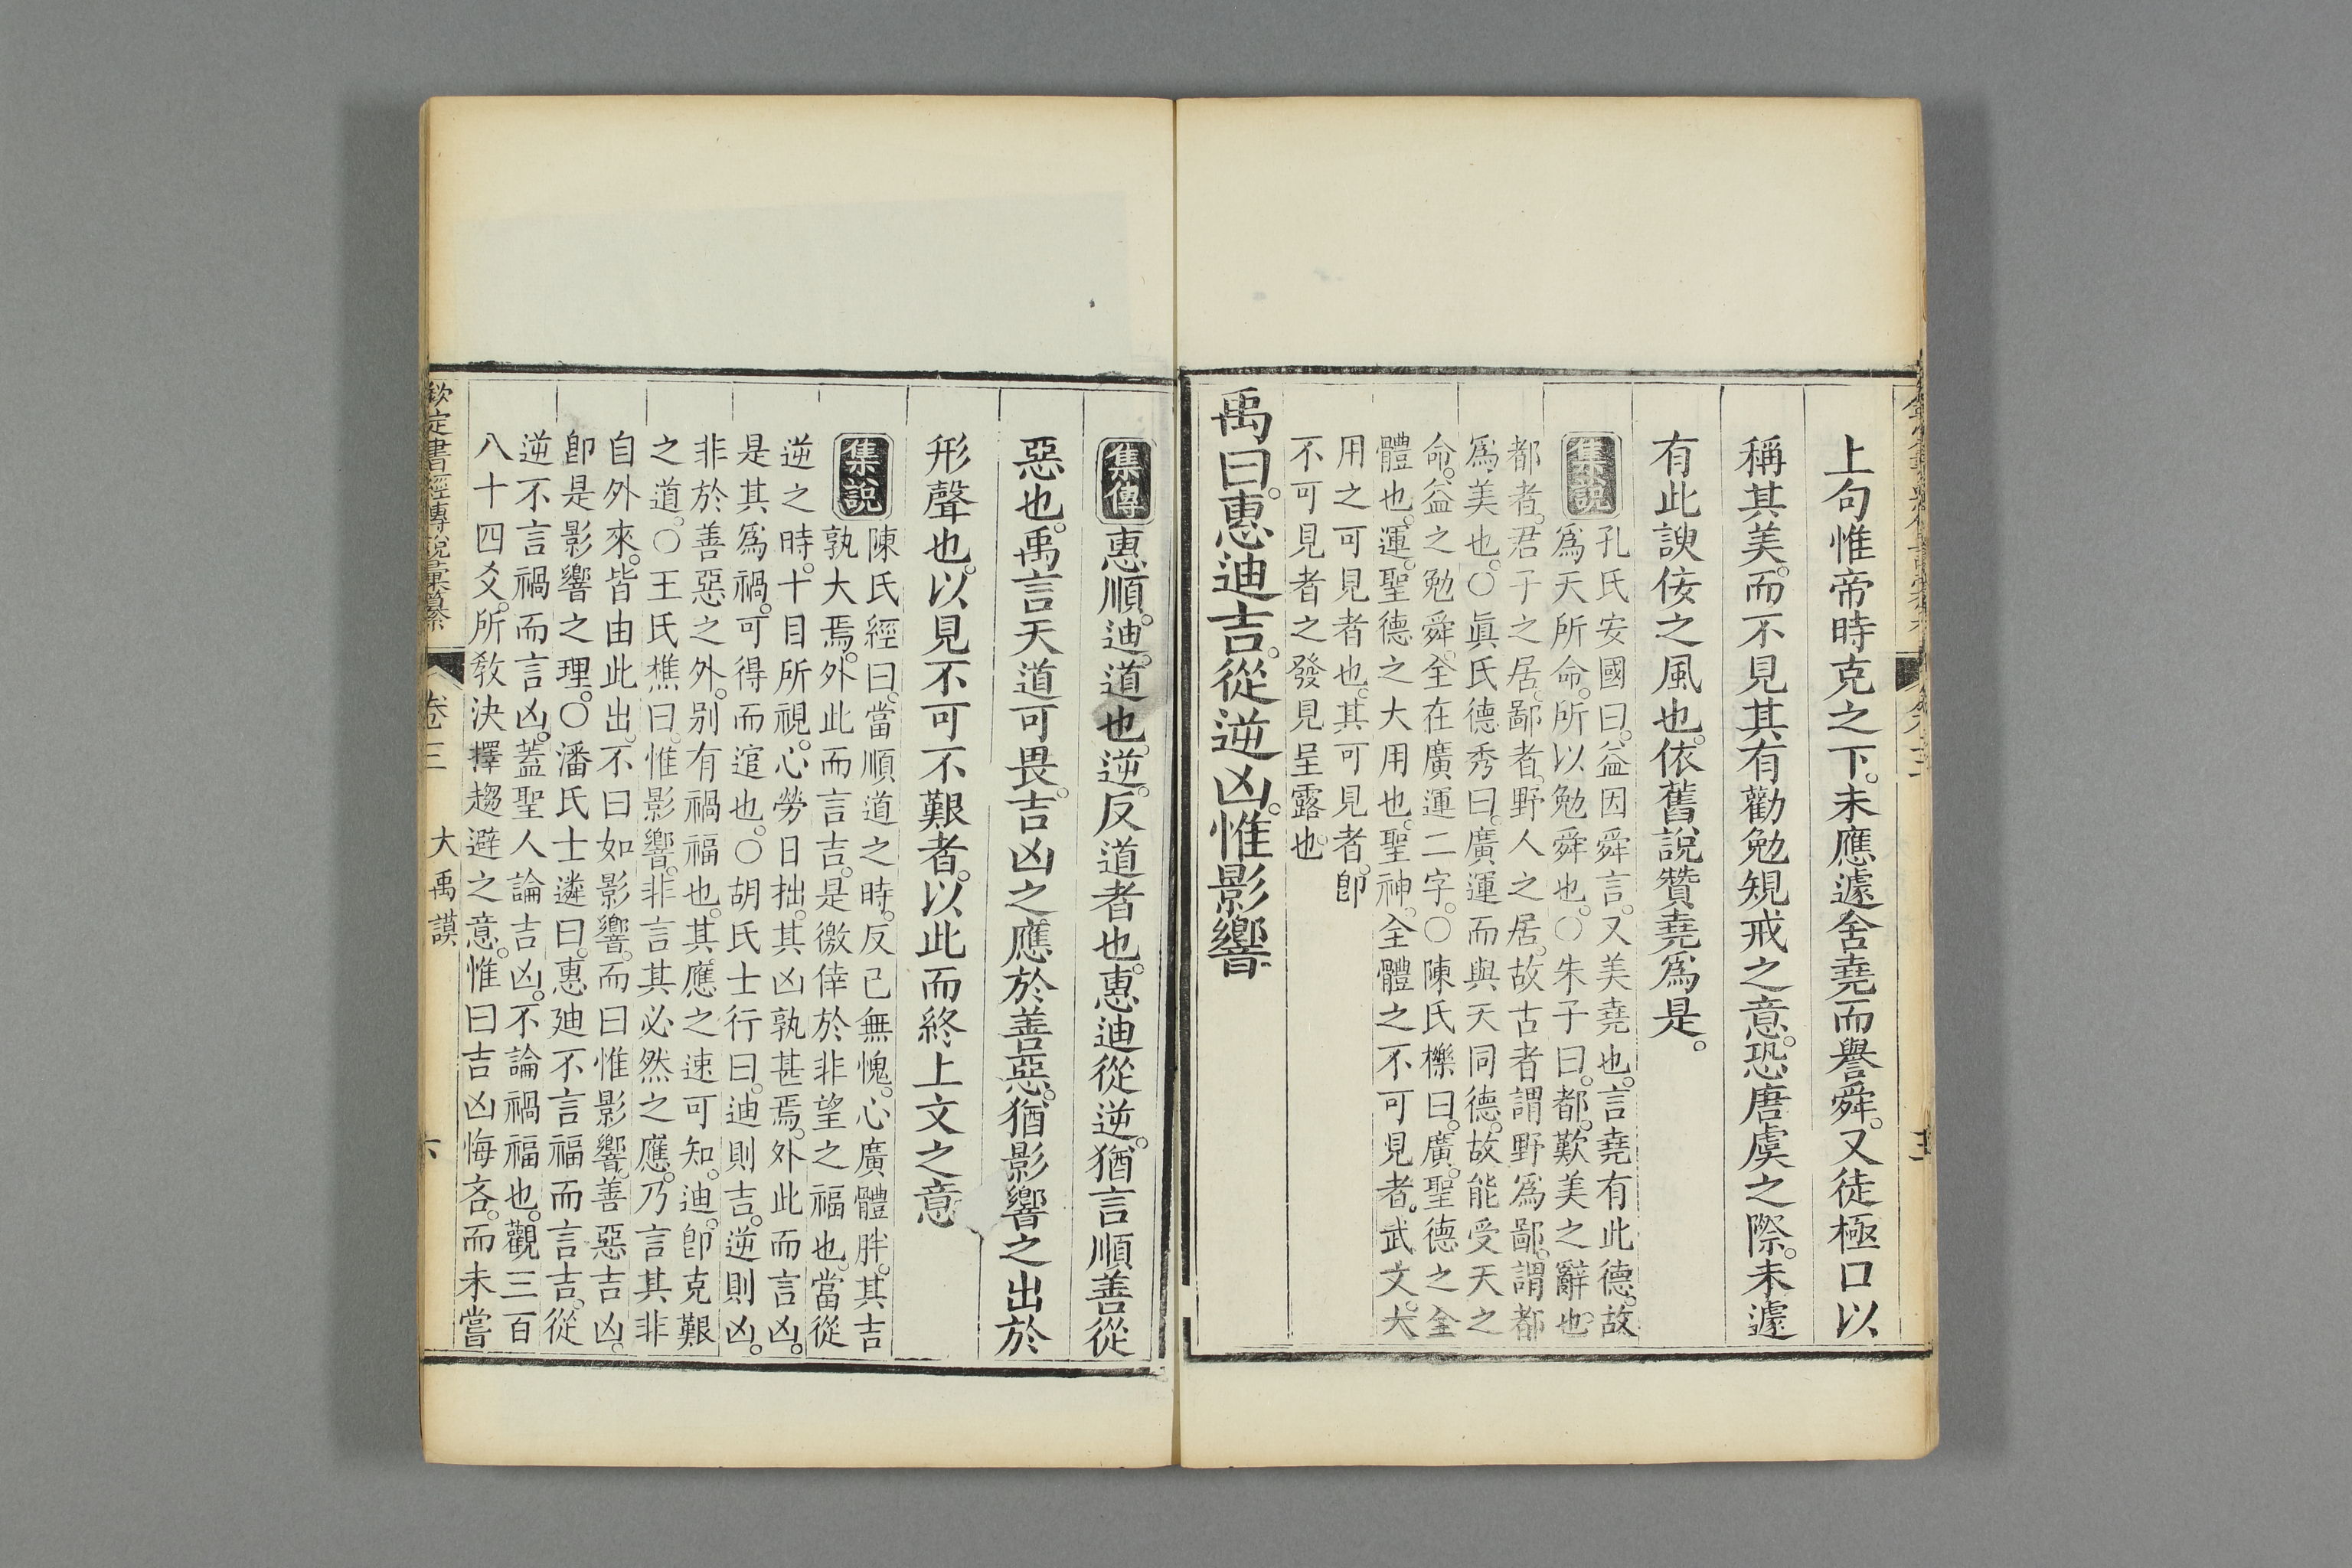 上句惟帝時克之下。未應遽舍堯而譽舜。又徒極口以
稱其美。而不見其有勸勉䂓戒之意。恐唐虞之際。未遽
有此諛佞之風也。依舊說贊堯爲是。
集說
孔氏安國曰。益因舜言。又美堯也。言堯有此德。故
爲天所命。所以勉舜也。○朱子曰。都。歎美之辭也。
都者。君子之居。鄙者。野人之居。故古者謂野爲鄙。謂都
爲美也。○眞氏德秀曰。廣運而與天同德。故能受天之
命。益之勉舜。全在廣運二字。○陳氏櫟曰。廣。聖德之全
體也。運。聖德之大用也。聖神。全體之不可見者。武文。大
用之可見者也。其可見者。卽
不可見者之發見呈露也。
禹曰。惠迪吉。從逆凶。惟影響
集傳
惠順。迪。道也。逆。反道者也。惠迪從逆。猶言順善從
惡也。禹言天道可畏。吉凶之應於善惡。猶影響之出於
形聲也。以見不可不艱者。以此而終上文之意
集說
陳氏經曰。當順道之時。反已無愧。心廣體胖。其吉
孰大焉。外此而言吉。是徼倖於非望之福也。當從
逆之時。十目所視。心勞日拙。其凶孰甚焉。外此而言凶。
是其爲禍。可得而逭也。○胡氏士行曰。迪則吉。逆則凶。
非於善惡之外。别有禍福也。其應之速可知。迪。卽克艱
之道。○王氏樵曰。惟影響。非言其必然之應。乃言其非
自外來。皆由此出。不曰如影響。而曰惟影響。善惡吉凶。
卽是影響之理。○潘氏士遴曰。惠廸不言福而言吉。從
逆不言禍而言凶。蓋聖人論吉凶。不論禍福也。觀三百
八十四爻。所教決擇趨避之意。惟曰吉凶悔吝。而未嘗
欽定書經傳說彙纂 卷三 大禹謨 六